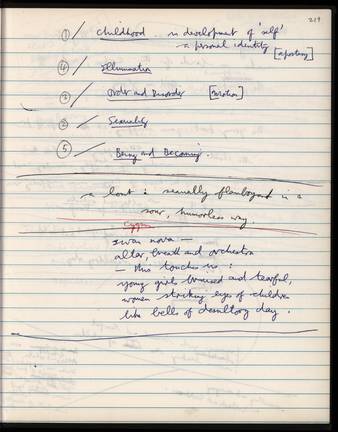 219
① / Childhood .. in development of 'self'
- a personal identity
④ / Illumination
③ / Order and Disorder
② / Sexuality
⑤ / Being and Becoming.
a lout : sexually flamboyant in a
sour, humorless way.
swan nova —
altar, breath and orchestra
— this touches us :
young girls bruised and tearful,
women striking eyes of children
like bells of desultory day.